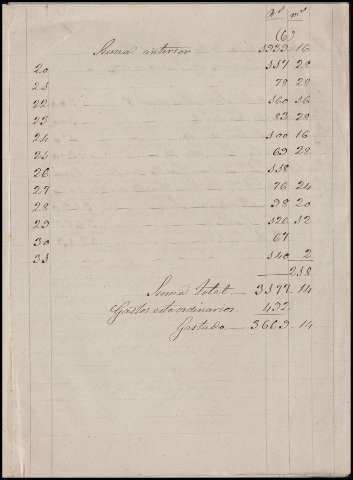 Rs ms
(6)
Suma anterior 1939 16
20 117 28
21 78 28
22 160 16
23 83 28
24 100 16
25 69 28
26 118
27 76 24
28 98 20
29 126 12
30 67
31 140 2
218
Suma total 3177 14
Gastos estraordinarios 432
Gastado 3609 14